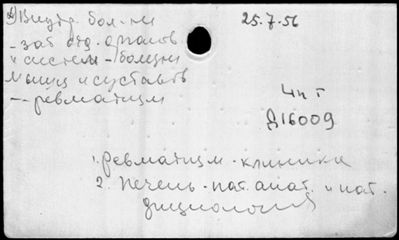 а) Внутр. бол-ни
- заб. отд. органов
и систем - болезни
мышц и суставов
-- ревматизм
25.7.56
4н т
Д16009
1. Ревматизм - клиника
2. Печень - пат. анат. и пат.
физиология